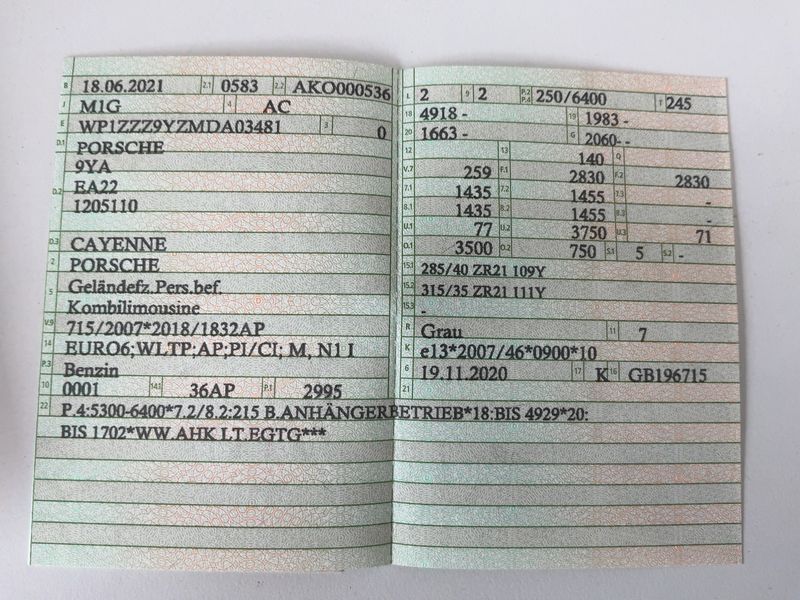 B 18.06.2021 2.1 0583 2.2 AKO000536
J M1G 4 AC
E WP1ZZZ9YZMDA03481 3 0
D.1 PORSCHE
9YA
D.2 EA22
1205110
D.3 CAYENNE
2 PORSCHE
5 Geländefz.Pers.bef.
Kombilimousine
V.9 715/2007*2018/1832AP
14 EURO6;WLTP;AP;PI/CI; M, N1 I
P.3 Benzin
10 0001 14.1 36AP P.1 2995
22 P.4:5300-6400*7.2/8.2:215 B.ANHÄNGERBETRIEB*18:BIS 4929*20:
BIS 1702*WW.AHK LT.EGTG***
L 2 9 2 P.2 P.4 250/6400 T 245
18 4918 - 19 1983 -
20 1663 - G 2060- -
12 13 140 Q
V.7 259 F.1 2830 F.2 2830
7.1 1435 7.2 1455 7.3 -
8.1 1435 8.2 1455 8.3 -
U.1 77 U.2 3750 U.3 71
O.1 3500 O.2 750 S.1 5 S.2 -
15.1 285/40 ZR21 109Y
15.2 315/35 ZR21 111Y
15.3 -
R Grau 11 7
K e13*2007/46*0900*10
6 19.11.2020 17 K 16 GB196715
21